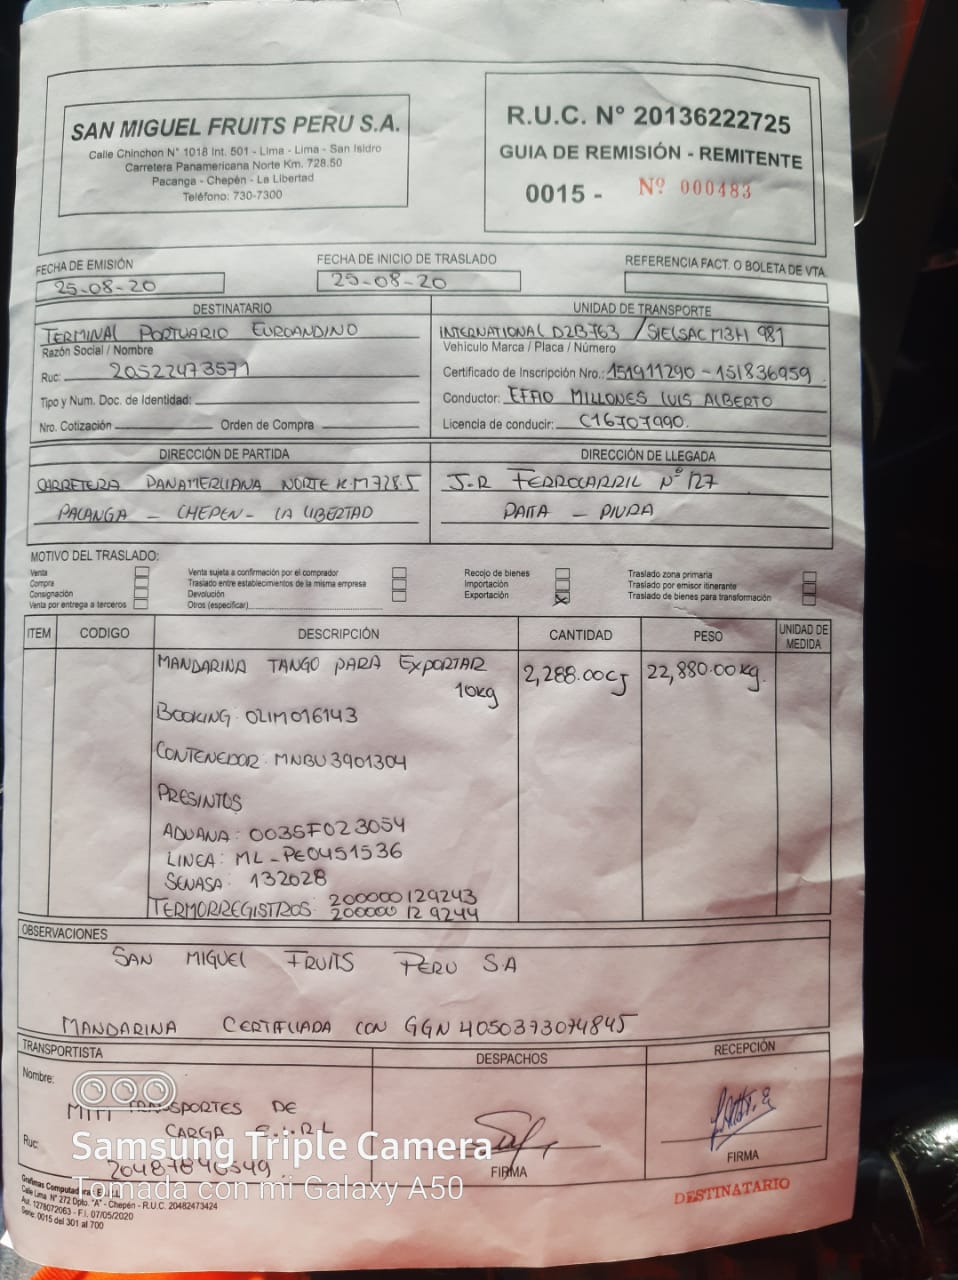 SAN MIGUEL FRUITS PERU S.A.
Calle Chinchon N° 1018 Int. 501 - Lima - Lima - San Isidro
Carretera Panamericana Norte Km. 728.50
Pacanga - Chepén - La Libertad
Teléfono: 730-7300
R.U.C. N° 20136222725
GUIA DE REMISIÓN - REMITENTE
0015 - Nº 000483
FECHA DE EMISIÓN
25-08-20
FECHA DE INICIO DE TRASLADO
25-08-20
REFERENCIA FACT. O BOLETA DE VTA.
DESTINATARIO
TERMINAL PORTUARIO EUROANDINO
Razón Social / Nombre
Ruc: 20522473571
Tipo y Num. Doc. de Identidad:
Nro. Cotización Orden de Compra
UNIDAD DE TRANSPORTE
INTERNATIONAL D2B763 / SIELSAC M3H 981
Vehículo Marca / Placa / Número
Certificado de Inscripción Nro.: 151911290 - 151836959
Conductor: EFFIO MILLONES LUIS ALBERTO
Licencia de conducir: C16707990.
DIRECCIÓN DE PARTIDA
CARRETERA PANAMERICANA NORTE K.M 728.5
PACANGA - CHEPEN - LA LIBERTAD
DIRECCIÓN DE LLEGADA
J-R FERROCARRIL Nº 127
PAITA - PIURA
MOTIVO DEL TRASLADO:
Venta
Compra
Consignación
Venta por entrega a terceros
Venta sujeta a confirmación por el comprador
Traslado entre establecimientos de la misma empresa
Devolución
Otros (especificar)
Recojo de bienes
Importación
Exportación X
Traslado zona primaria
Traslado por emisor itinerante
Traslado de bienes para transformación
ITEM CODIGO DESCRIPCIÓN CANTIDAD PESO UNIDAD DE MEDIDA
MANDARINA TANGO PARA EXPORTAR 2,288.00CJ 22,880.00 kg.
10kg
BOOKING: 02IM016143
CONTENEDOR: MNBU 3901304
PRESINTOS
ADUANA: 0035F023054
LINEA: ML-PE0451536
SENASA: 132028
TERMORREGISTROS: 200000129243
200000129244
OBSERVACIONES
SAN MIGUEL FRUITS PERU S.A
MANDARINA CERTIFICADA CON GGN 4050373074845
TRANSPORTISTA
Nombre:
MTM TRANSPORTES DE
CARGA E.I.R.L
Ruc:
DESPACHOS
FIRMA
RECEPCIÓN
FIRMA
DESTINATARIO
Samsung Triple Camera
Tomada con mi Galaxy A50
Calle Lima N° 272 Dpto. "A" - Chepén - R.U.C. 20482473424
Aut. 1278072063 - F.I. 07/05/2020
Serie: 0015 del 301 al 700